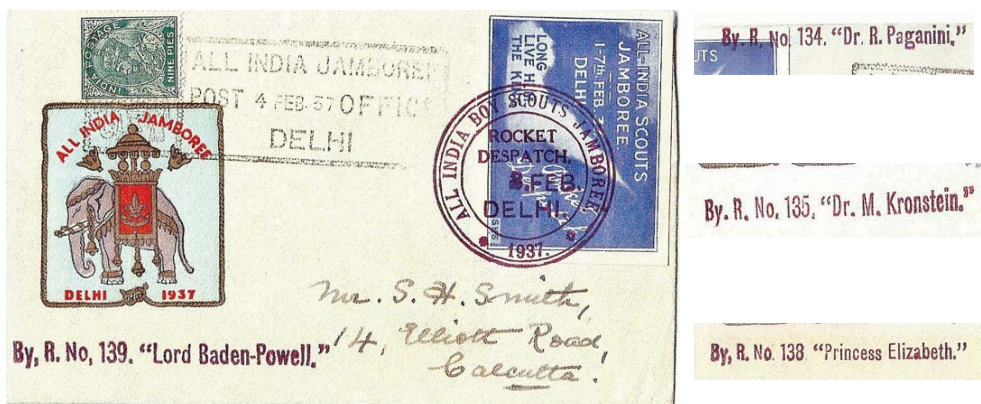 INDIA POSTAGE
NINE PIES
ALL INDIA JAMBOREE
POST 4 FEB. 37 OFFICE
DELHI
ALL-INDIA SCOUTS
JAMBOREE
1-7th. FEB.
DELHI
LONG
LIVE H
THE K
ALL INDIA BOY SCOUTS JAMBOREE
ROCKET
DESPATCH.
3. FEB.
DELHI.
1937.
ALL INDIA JAMBOREE
DELHI 1937
Mr. S. H. Smith,
14, Elliott Road,
Calcutta.
By, R. No, 139. "Lord Baden-Powell."
UTS
By. R. No. 134. "Dr. R. Paganini."
By. R. No. 135. "Dr. M. Kronstein."
By, R. No. 138 "Princess Elizabeth."